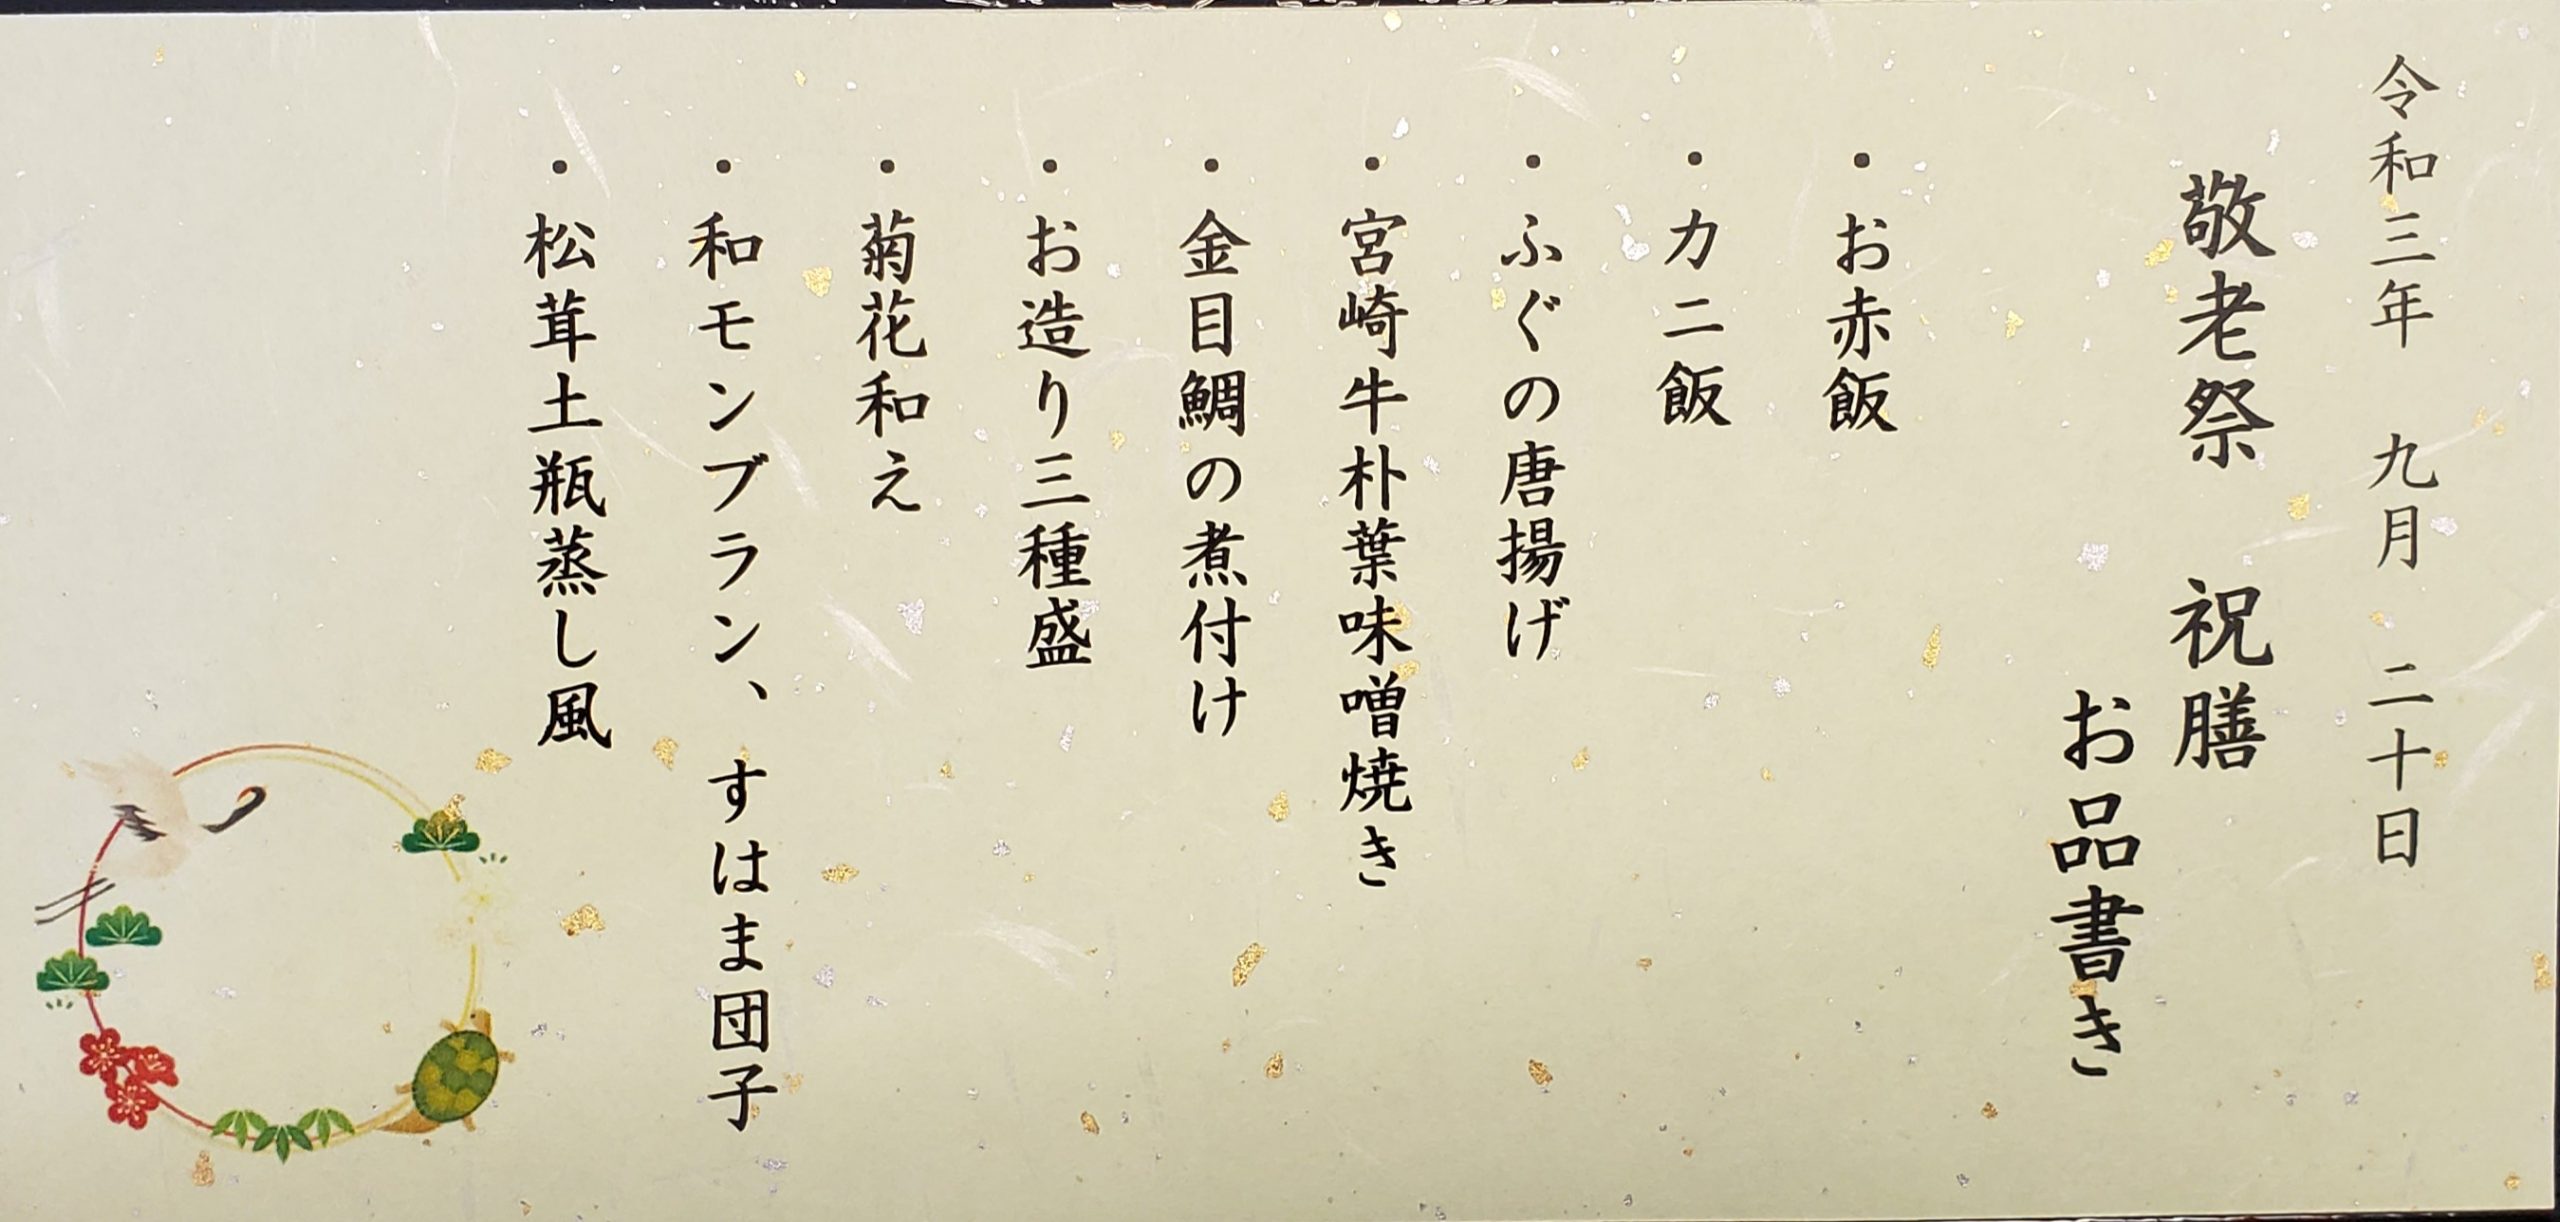 令和三年 九月 二十日
敬老祭 祝膳
お品書き
・お赤飯
・カニ飯
・ふぐの唐揚げ
・宮崎牛朴葉味噌焼き
・金目鯛の煮付け
・お造り三種盛
・菊花和え
・和モンブラン、すはま団子
・松茸土瓶蒸し風